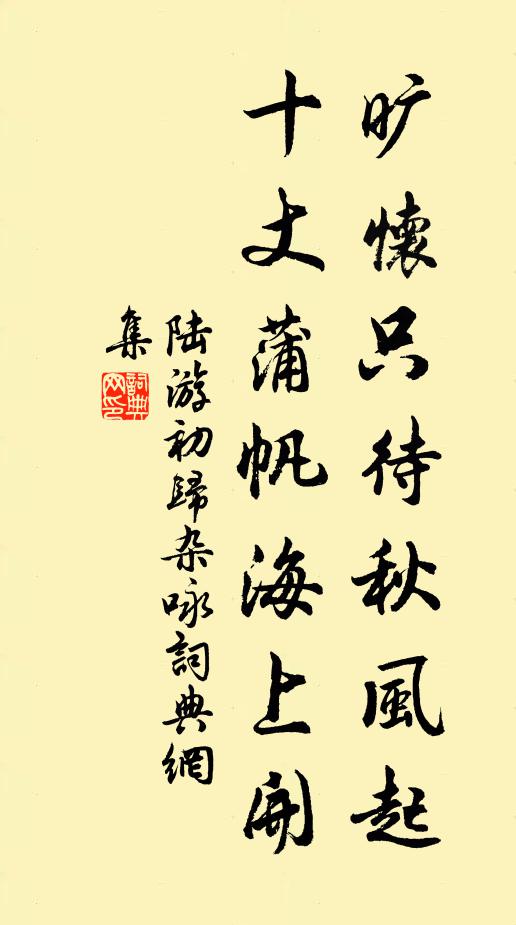 旷懷只待秋風起
十丈蒲帆海上開
陆游初歸杂咏詞典網
集
詞典
网印